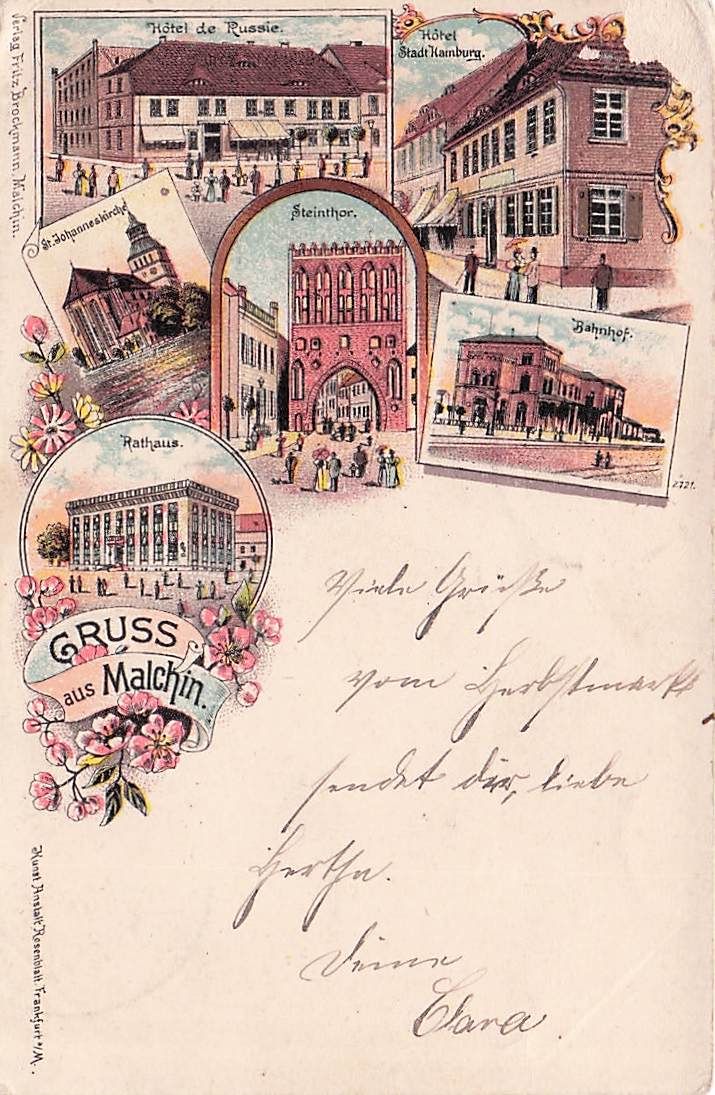 Hôtel de Russie.
Hôtel
Stadt Hamburg.
Verlag Fritz Brockmann, Malchin.
St. Johanneskirche
Steinthor.
Bahnhof.
2721.
Rathaus.
GRUSS
aus Malchin.
Viele Grüße
vom Herbstmarkt
sendet dir, liebe
Hertha.
Deine
Clara.
Kunst Anstalt Rosenblatt, Frankfurt a/M.